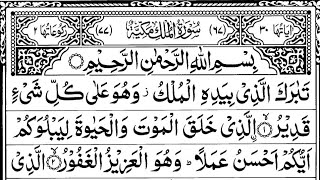 اٰيَاتُهَا ٣٠ (٦٧) سُوْرَةُ الْمُلْكِ مَكِّيَّةٌ (٧٧) رُكُوْعَاتُهَا ٢
بِسْمِ اللّٰهِ الرَّحْمٰنِ الرَّحِيْمِ
تَبٰرَكَ الَّذِيْ بِيَدِهِ الْمُلْكُ ز وَهُوَ عَلٰى كُلِّ شَيْءٍ
قَدِيْرُ ۙ﴿۱﴾ اِۨلَّذِيْ خَلَقَ الْمَوْتَ وَالْحَيٰوةَ لِيَبْلُوَكُمْ
اَيُّكُمْ اَحْسَنُ عَمَلًا ؕ وَهُوَ الْعَزِيْزُ الْغَفُوْرُ ۙ﴿۲﴾ الَّذِيْ